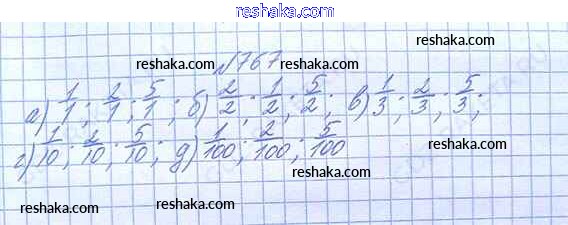 reshaka.com
reshaka.com №767 reshaka.com
а) 1/1; 2/1; 5/1; б) 2/2; 1/2; 5/2; в) 1/3; 2/3; 5/3;
г) 1/10; 2/10; 5/10; д) 1/100; 2/100; 5/100
reshaka.com reshaka.com
reshaka.com reshaka.com
reshaka.com